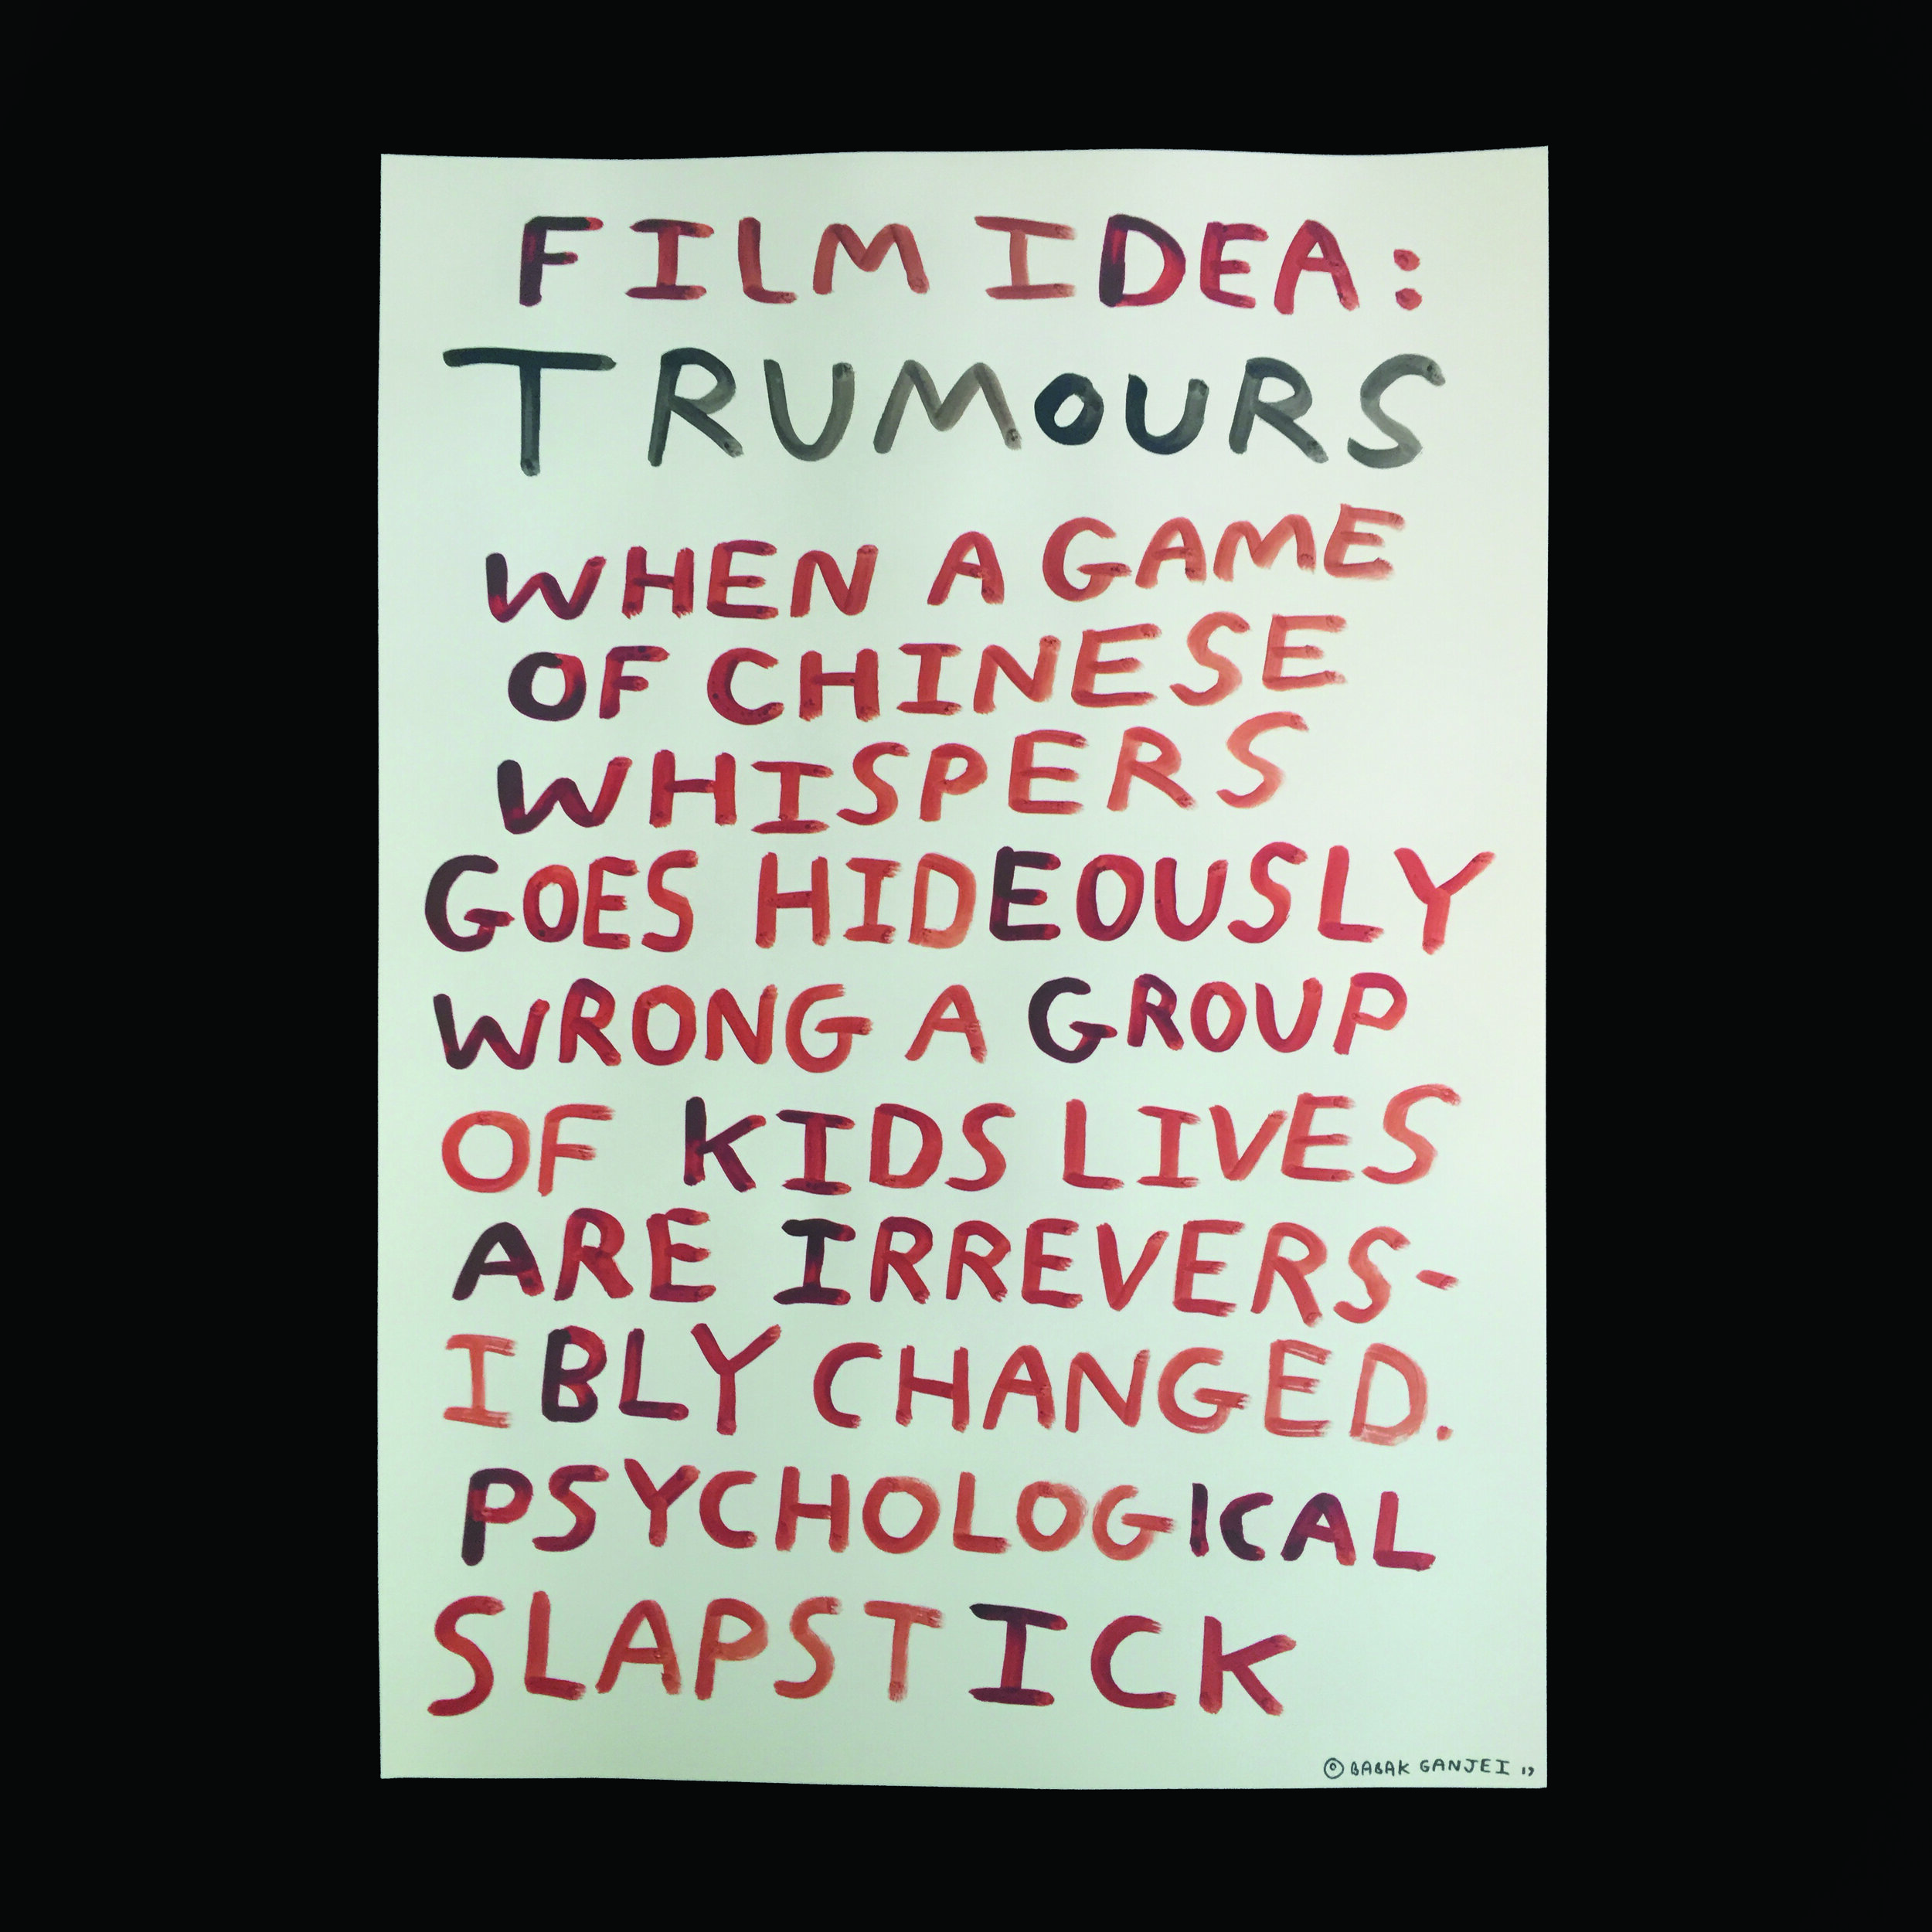 FILM IDEA:
TRUMOURS
WHEN A GAME
OF CHINESE
WHISPERS
GOES HIDEOUSLY
WRONG A GROUP
OF KIDS LIVES
ARE IRREVERS-
IBLY CHANGED.
PSYCHOLOGICAL
SLAPSTICK
© BABAK GANJEI 19